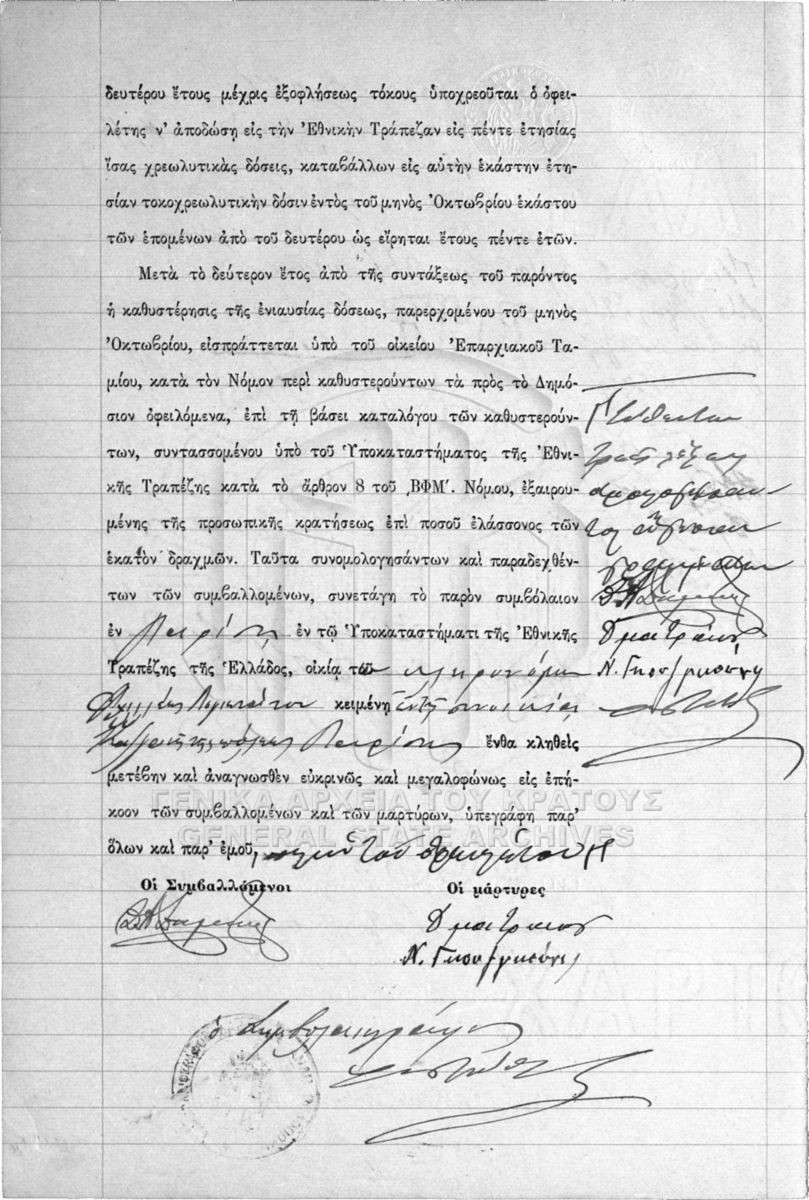 δευτέρου ἔτους μέχρις ἐξοφλήσεως τόκους ὑποχρεοῦται ὁ ὀφει-
λέτης ν' ἀποδώσῃ εἰς τὴν Ἐθνικὴν Τράπεζαν εἰς πέντε ἐτησίας
ἴσας χρεωλυτικὰς δόσεις, καταβάλλων εἰς αὐτὴν ἑκάστην ἐτη-
σίαν τοκοχρεωλυτικὴν δόσιν ἐντὸς τοῦ μηνὸς Ὀκτωβρίου ἑκάστου
τῶν ἑπομένων ἀπὸ τοῦ δευτέρου ὡς εἴρηται ἔτους πέντε ἐτῶν.
Μετὰ τὸ δεύτερον ἔτος ἀπὸ τῆς συντάξεως τοῦ παρόντος
ἡ καθυστέρησις τῆς ἐνιαυσίας δόσεως, παρερχομένου τοῦ μηνὸς
Ὀκτωβρίου, εἰσπράττεται ὑπὸ τοῦ οἰκείου Ἐπαρχιακοῦ Τα-
μίου, κατὰ τὸν Νόμον περὶ καθυστερούντων τὰ πρὸς τὸ Δημό-
σιον ὀφειλόμενα, ἐπὶ τῇ βάσει καταλόγου τῶν καθυστερούν-
των, συντασσομένου ὑπὸ τοῦ Ὑποκαταστήματος τῆς Ἐθνι-
κῆς Τραπέζης κατὰ τὸ ἄρθρον 8 τοῦ ͵ΒΦΜʹ. Νόμου, ἐξαιρου-
μένης τῆς προσωπικῆς κρατήσεως ἐπὶ ποσοῦ ἐλάσσονος τῶν
ἑκατὸν δραχμῶν. Ταῦτα συνομολογησάντων καὶ παραδεχθέν-
των τῶν συμβαλλομένων, συνετάγη τὸ παρὸν συμβόλαιον
ἐν Λαρίσῃ ἐν τῷ Ὑποκαταστήματι τῆς Ἐθνικῆς
Τραπέζης τῆς Ἑλλάδος, οἰκίᾳ τῶν κληρονόμων
κειμένῃ
Λαρίσης ἔνθα κληθεὶς
μετέβην καὶ ἀναγνωσθὲν εὐκρινῶς καὶ μεγαλοφώνως εἰς ἐπή-
κοον τῶν συμβαλλομένων καὶ τῶν μαρτύρων, ὑπεγράφη παρ'
ὅλων καὶ παρ' ἐμοῦ,
ΓΕΝΙΚΑ ΑΡΧΕΙΑ ΤΟΥ ΚΡΑΤΟΥΣ
GENERAL STATE ARCHIVES
Οἱ Συμβαλλόμενοι
Οἱ μάρτυρες
ὁ Συμβολαιογράφος